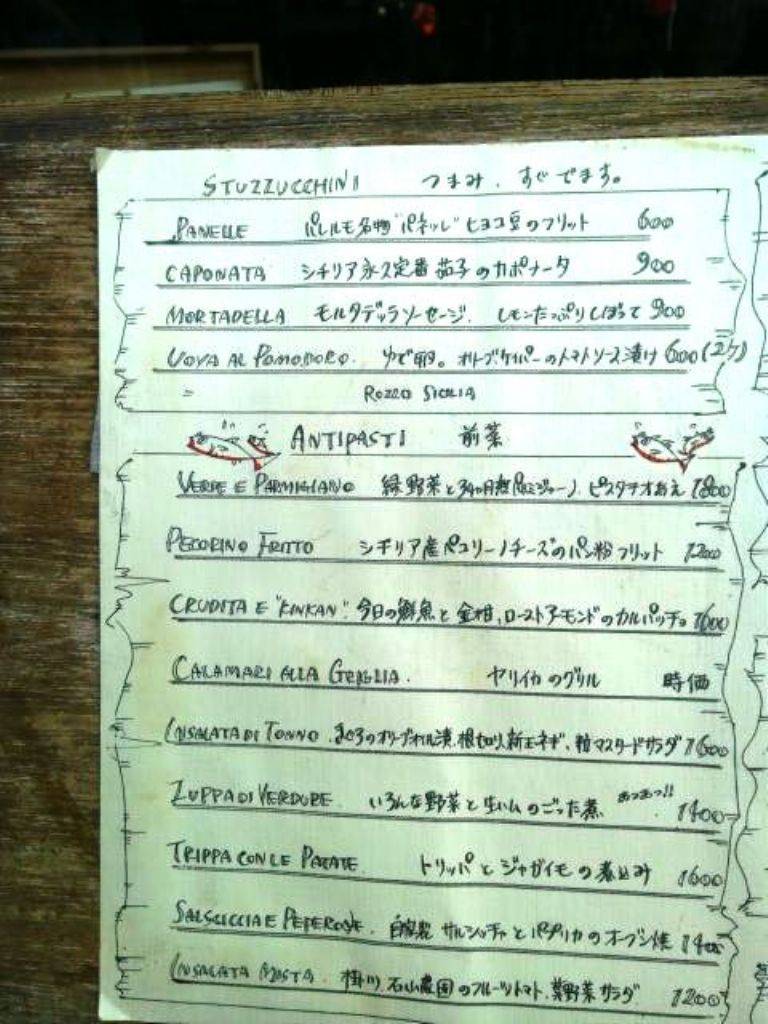 STUZZUCCHINI つまみ、すぐでます。
PANELLE パレルモ名物"パネッレ"ヒヨコ豆のフリット 600
CAPONATA シチリア永久定番 茄子のカポナータ 900
MORTADELLA モルタデッラソーセージ、レモンたっぷりしぼって 900
UOVA AL POMODORO. ゆで卵。オリーブ、ケイパーのトマトソース漬け 600(2ケ)
ROZZO SICILIA
ANTIPASTI 前菜
VERDE E PARMIGIANO 緑野菜と34ヶ月熟 ピスタチオあえ 1800
PECORINO FRITTO シチリア産ペコリーノチーズのパン粉フリット 1200
CRUDITA E "KINKAN". 今日の鮮魚と金柑、ローストアーモンドのカルパッチョ 1600
CALAMARI ALLA GRIGLIA. ヤリイカのグリル 時価
INSALATA DI TONNO. まぐろのオリーブオイル漬、根切り新玉ネギ、粒マスタードサラダ 1600
ZUPPA DI VERDURE. いろんな野菜と生ハムのごった煮 あつあつ!! 1400
TRIPPA CON LE PATATE. トリッパとジャガイモの煮込み 1600
SALSICCIA E PEPERONE. 自家製 サルシッチャとパプリカのオーブン焼 1400
INSALATA MISTA. 掛川 石山農園のフルーツトマト、葉野菜サラダ 1200